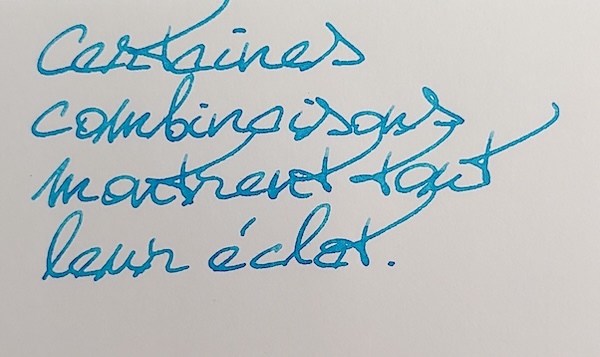 Certaines
combinaisons
montrent tout
leur éclat.